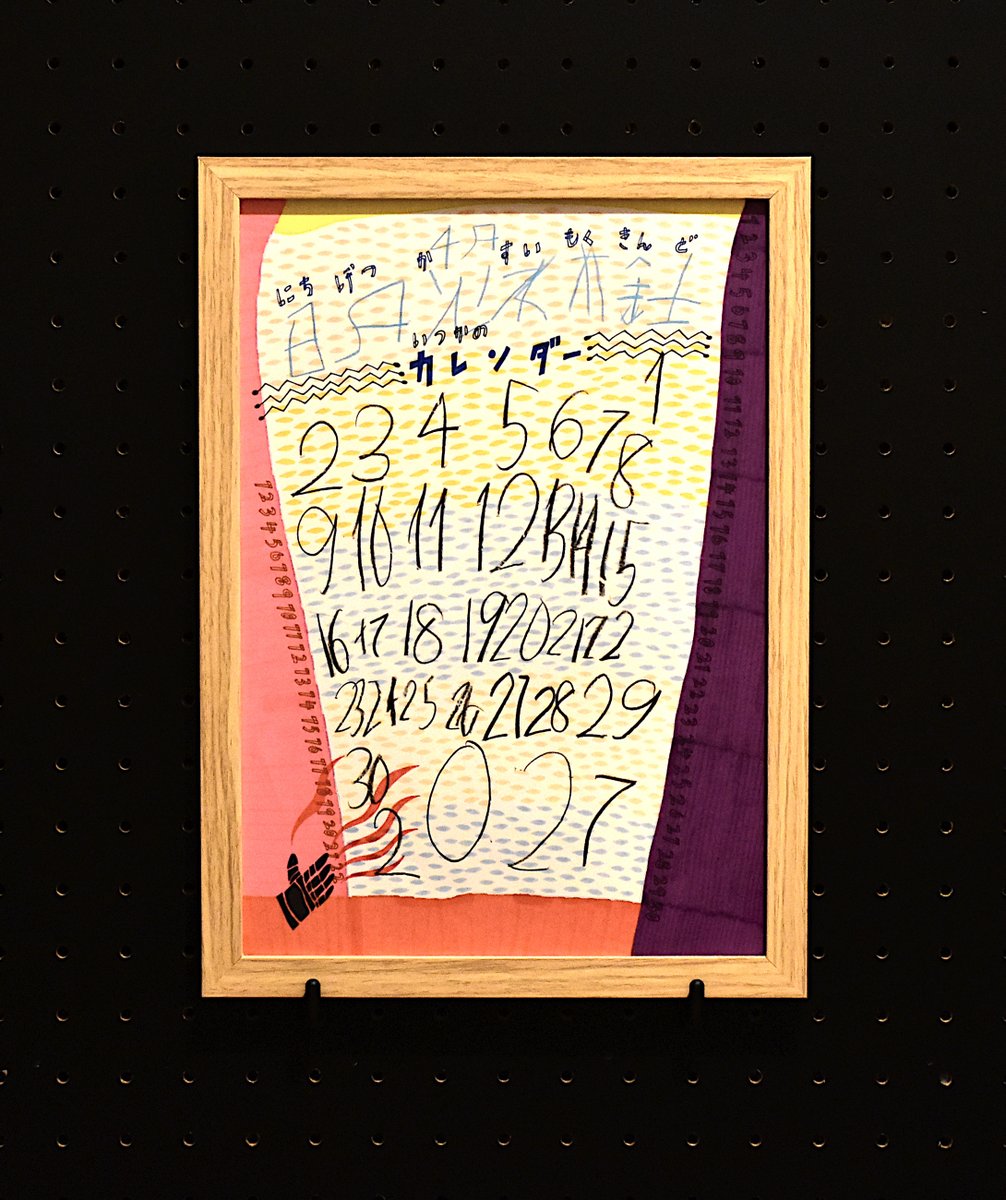 4月
にち げつ か すい もく きん ど
日 月 火 水 木 金 土
いつかの
カレンダー
1
2 3 4 5 6 7 8
9 10 11 12 13 14 15
16 17 18 19 20 21 22
23 24 25 26 27 28 29
30
2027
1 2 3 4 5 6 7 8 9 10 11 12 13 14 15 16 17 18 19 20 21 22
1 2 3 4 5 6 7 8 9 10 11 12 13 14 15 16 17 18 19 20 21 22 23 24 25 26 27 28 29 30